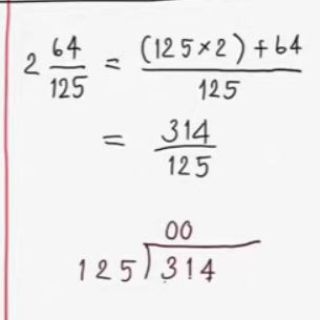 2 64/125 = (125×2)+64/125
= 314/125
00
125)314